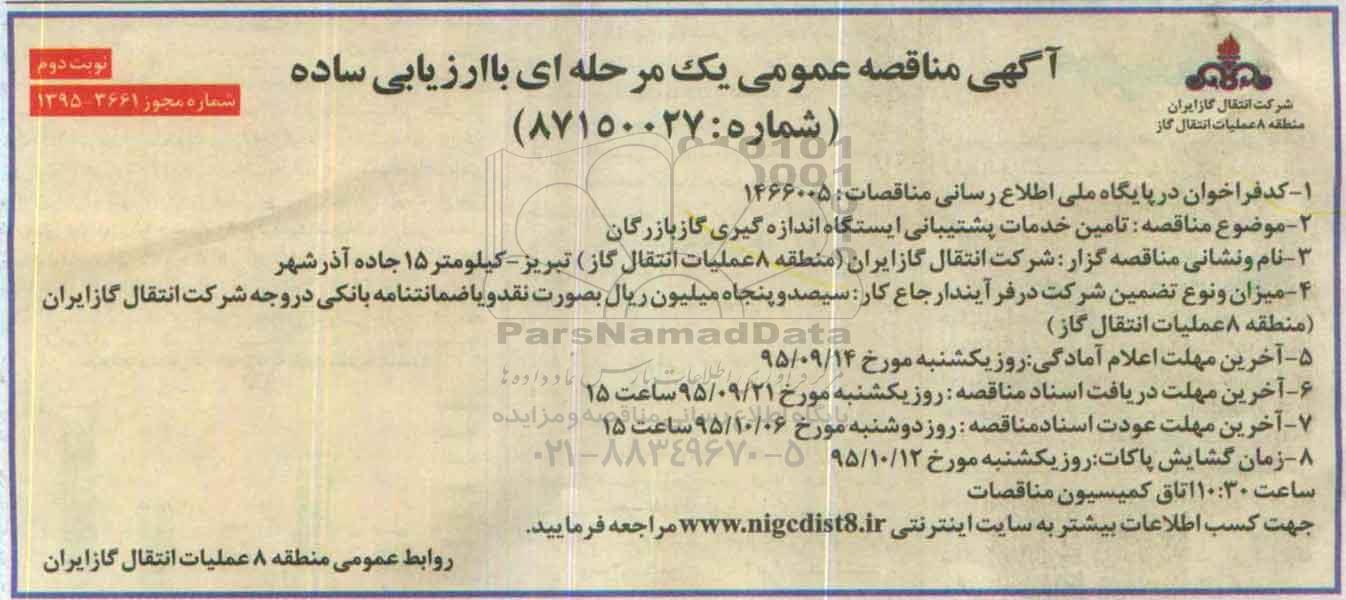 شرکت انتقال گاز ایران
منطقه ۸ عملیات انتقال گاز
نوبت دوم
شماره مجوز ۳۶۶۱-۱۳۹۵
آگهی مناقصه عمومی یک مرحله ای با ارزیابی ساده
(شماره: ۸۷۱۵۰۰۲۷)
۱-کدفراخوان در پایگاه ملی اطلاع رسانی مناقصات: ۱۴۶۶۰۰۵
۲-موضوع مناقصه: تامین خدمات پشتیبانی ایستگاه اندازه گیری گاز بازرگان
۳-نام ونشانی مناقصه گزار: شرکت انتقال گاز ایران (منطقه ۸ عملیات انتقال گاز) تبریز-کیلومتر ۱۵ جاده آذرشهر
۴-میزان ونوع تضمین شرکت در فرآیند ارجاع کار: سیصد و پنجاه میلیون ریال بصورت نقد و یا ضمانتنامه بانکی در وجه شرکت انتقال گاز ایران
(منطقه ۸ عملیات انتقال گاز)
۵-آخرین مهلت اعلام آمادگی: روز یکشنبه مورخ ۹۵/۰۹/۱۴
۶-آخرین مهلت دریافت اسناد مناقصه: روز یکشنبه مورخ ۹۵/۰۹/۲۱ ساعت ۱۵
۷-آخرین مهلت عودت اسناد مناقصه: روز دوشنبه مورخ ۹۵/۱۰/۰۶ ساعت ۱۵
۸-زمان گشایش پاکات: روز یکشنبه مورخ ۹۵/۱۰/۱۲
ساعت ۱۰:۳۰ اتاق کمیسیون مناقصات
جهت کسب اطلاعات بیشتر به سایت اینترنتی www.nigcdist8.ir مراجعه فرمایید.
روابط عمومی منطقه ۸ عملیات انتقال گاز ایران
ParsNamadData
مرکز فرآوری اطلاعات پارس نماد داده ها
پایگاه اطلاع رسانی مناقصه و مزایده
۰۲۱-۸۸۳۴۹۶۷۰-۵